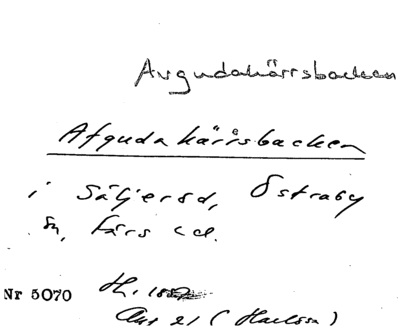 Avgudakärrsbacken
Afguda kärrsbacken
i Säljeröd, Östraby
sn, Färs hd.
Nr 5070 H. 1882
Ant 21 (